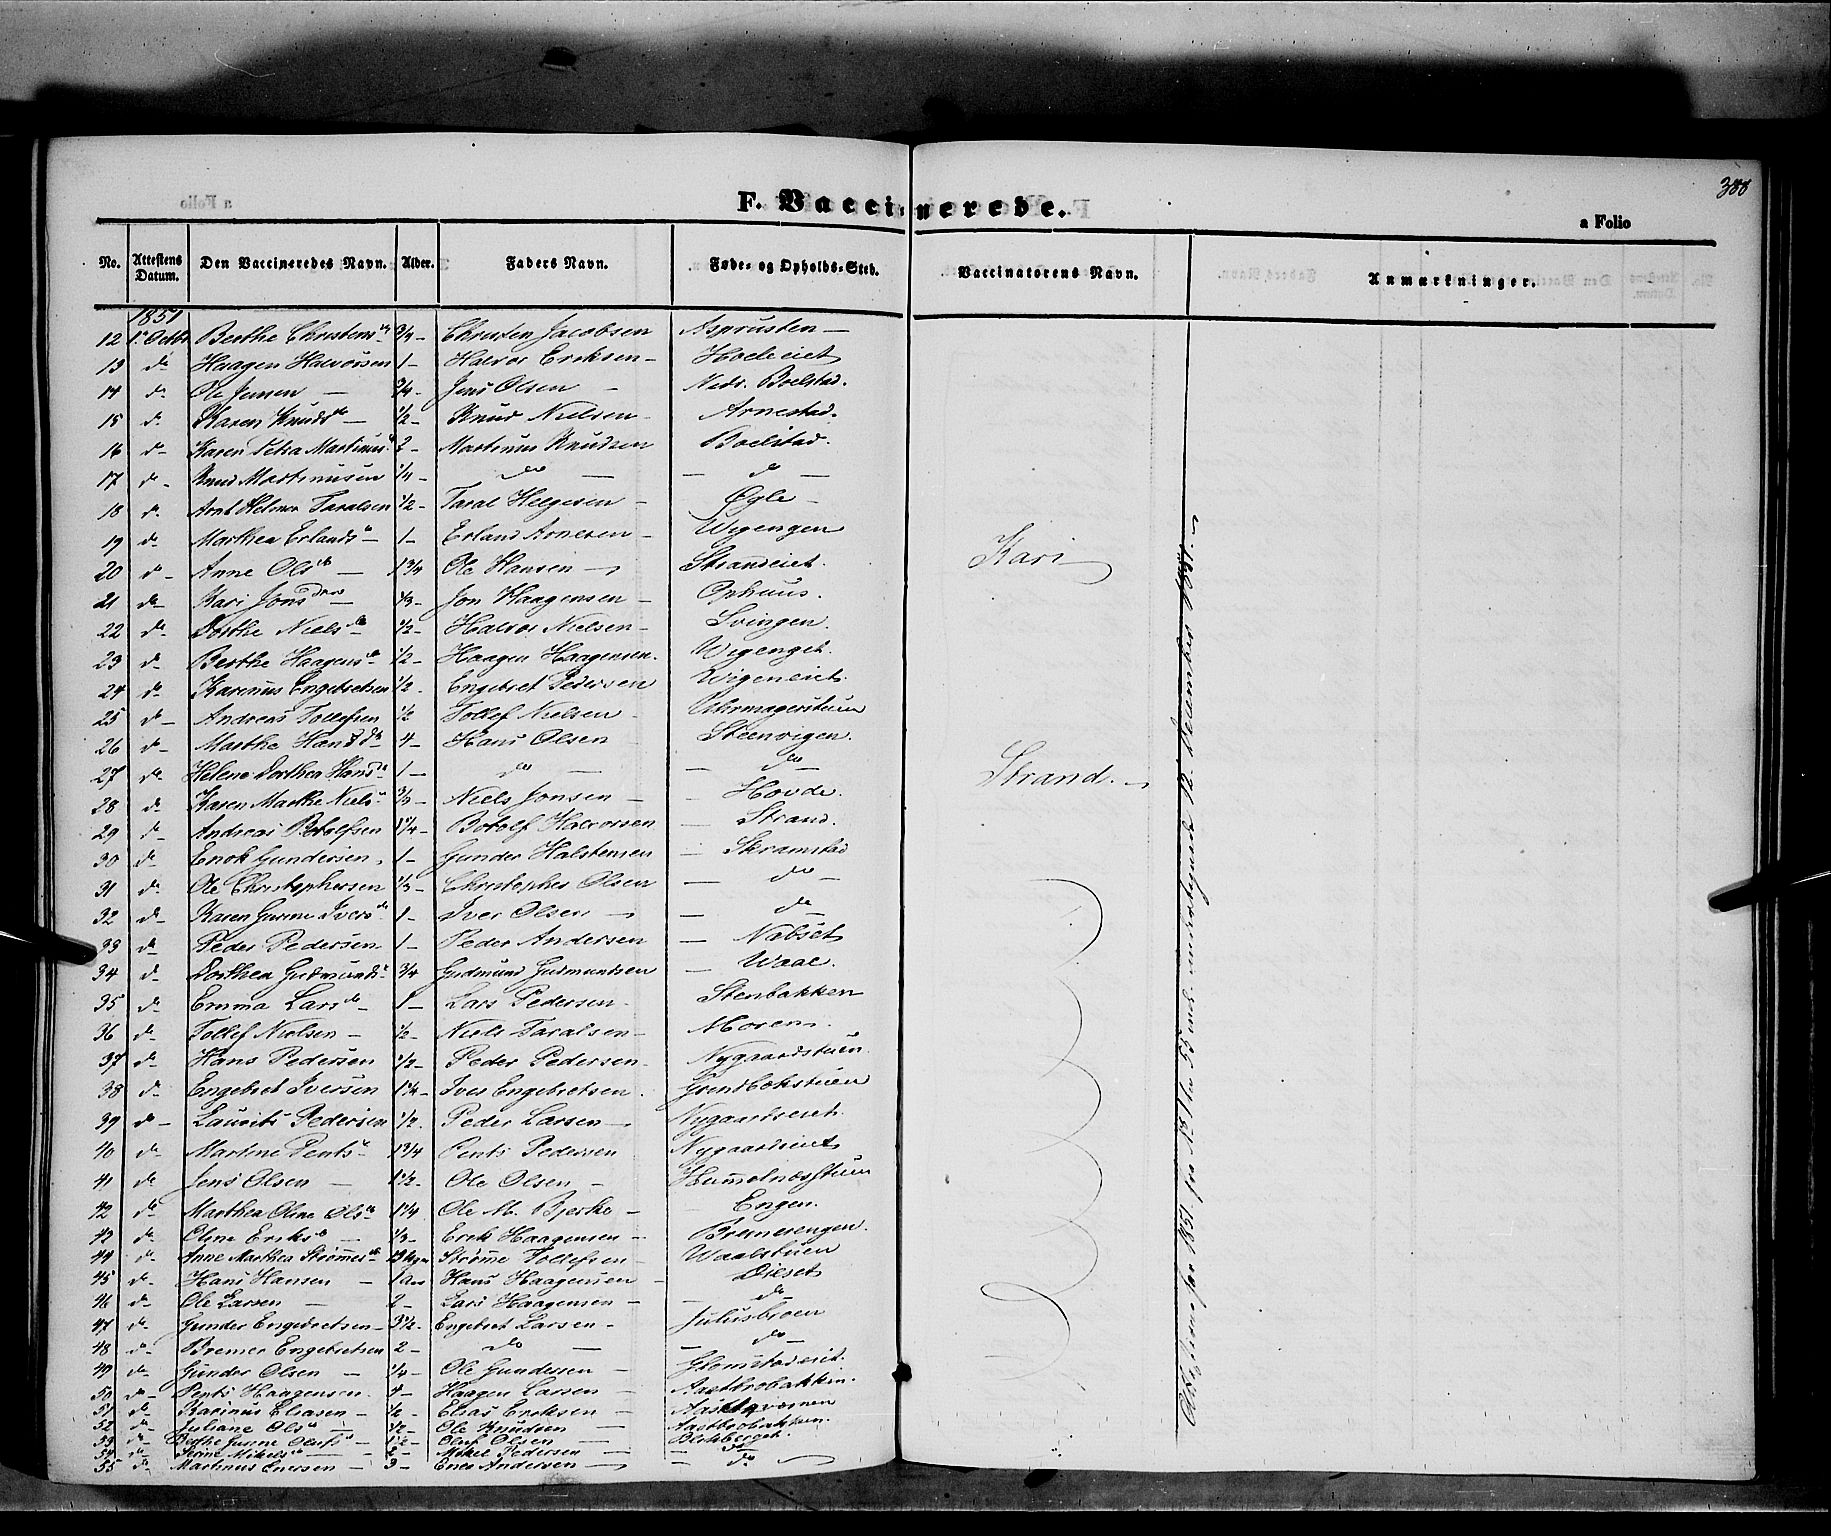 388
F. Vaccinerede.
a Folio
No. Attestens Datum. Den Vaccineredes Navn. Alder. Faders Navn. Føde- og Opholds-Sted. Vaccinatorens Navn. Anmærkninger.
1851
12 1 Octbr Berthe Christens 3/4 Christen Jacobsen Asprusten
13 do Haagen Halvorsen 1 Halvor Eriksen
14 do Ole Jensen 3/4 Jens Olsen Nedr. Boelstad.
15 do Karen Knudsdr 1/2 Knud Nielsen Arnestad.
16 do Karen Petra Martinus 2 Martinus Knudsen Boelstad.
17 do Knud Martinusen 1/4 do do
18 do Arnt Helmer Taralsen 1/2 Taral Helgesen Øgle
19 do Marthea Erlands 1 Erland Arnesen Wigengen
20 do Anne Olsdr 1 3/4 Ole Hansen Strandeiet. Kari
21 do Kari Jonsdr Jon Haagensen Ophuus.
22 do Dorthe Nielsdr 1/2 Halvor Nielsen Svingen.
23 do Berthe Haagensdr 1/2 Haagen Haagensen. Wigenget.
24 do Karinus Engebretsen 1/2 Engebret Pedersen Wigeneiet.
25 do Andreas Tollefsen 1/2 Tollef Nielsen Uhrmagerstuen
26 do Marthe Hansdr 4 Hans Olsen Steenvigen.
27 do Helene Dorthea Hansdr 1 do do Strand.
28 do Karen Marthe Niels Niels Jonsen Hovde.
29 do Andreas Botolfsen 1 1/4 Botolf Halvorsen Strand.
30 do Enok Gundersen 1 Gunder Halstensen Skramstad
31 do Ole Christophersen 1/3 Christopher Olsen do
32 do Karen Gurine Ivers 1 Iver Olsen do
33 do Peder Pedersen 1 Peder Andersen Nabset
34 do Dorthea Gudmunds 3/4 Gudmund Gudmundsen Waal.
35 do Emma Larsdr 1 Lars Pedersen Stenbakken
36 do Tollef Nielsen 1/2 Niels Taralsen Moren.
37 do Hans Pedersen 1/2 Peder Pedersen Nygaardstuen
38 do Engebret Iversen 1 1/4 Iver Engebretsen
39 do Laurits Pedersen 1/2 Peder Larsen Nygaardseiet.
40 do Martine Pents 1 3/4 Pents Pedersen Nygaardseiet
41 do Jens Olsen 1 1/2 Ole Olsen Hummelnæsstuen
42 do Marthea Oline Ols 1 1/4 Ole M. Bjerke Engen.
43 do Oline Eriksdr 1/3 Erik Haagensen Bremerengen.
44 do Anne Marthea Strømmesdr Strømme Tollefsen Waalstuen
45 do Hans Hansen 1 Aar Hans Haagensen Dieset
46 do Ole Larsen 2 Lars Haagensen do
47 do Gunder Engebretsen 3 1/2 Engebret Larsen Julusbroen
48 do Bremer Engebretsen 2 do do
49 do Gunder Olsen 1/4 Ole Gundersen Glomstadeiet.
50 do Pents Haagensen 4 Haagen Larsen Aastbrobakken.
51 do Karinus Eliasen 1/2 Elias Eriksen Aastqvernen
52 do Juliane Ols 1/2 Ole Knudsen Aastbrobakken.
53 do Berthe Gurine Olufs 1 1/2 Oluf Olsen
54 do Mikels 2 Mikel Pedersen do
55 do Martinus Enersen 3 Ener Andersen do
for 1851 fra No 1 til 55 incl. 12 December 1851.